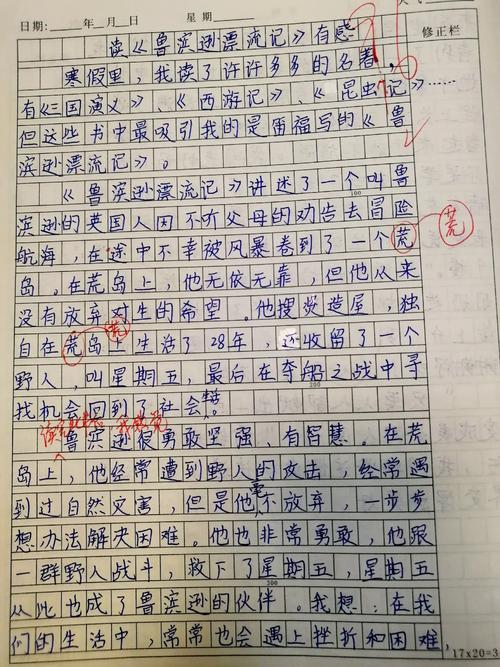 日期: 年 月 日 星期
修正栏
读《鲁滨逊漂流记》有感
寒假里,我读了许许多多的名著,
有《三国演义》、《西游记》、《昆虫记》……
但这些书中最吸引我的是雷福写的《鲁
滨逊漂流记》。
《鲁滨逊漂流记》讲述了一个叫鲁
100
滨逊的英国人因不听父母的劝告去冒险
航海,在途中不幸被风暴卷到了一个荒
荒
岛。在荒岛上,他无依无靠,但他从来
没有放弃对生的希望。他搜
造屋,独
荒
自在荒岛上生活了28年,还收留了一个
野人,叫星期五,最后在夺船之战中寻
200
找机会回到了社会
鲁滨逊很勇敢坚强、有智慧。在荒
岛上,他经常遭到野人的攻击,经常遇
到过自然灾害,但是他毫不放弃,一步步
想办法解决困难。他也非常勇敢,他跟
一群野人战斗,救下了星期五,星期五
300
从此也成了鲁滨逊的伙伴。我想:在我
们的生活中,常常也会遇上挫折和困难,
17×20=3